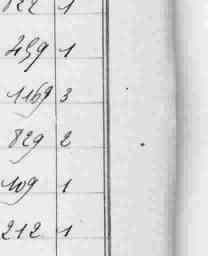 822 1
439 1
1169 3
829 2
109 1
212 1